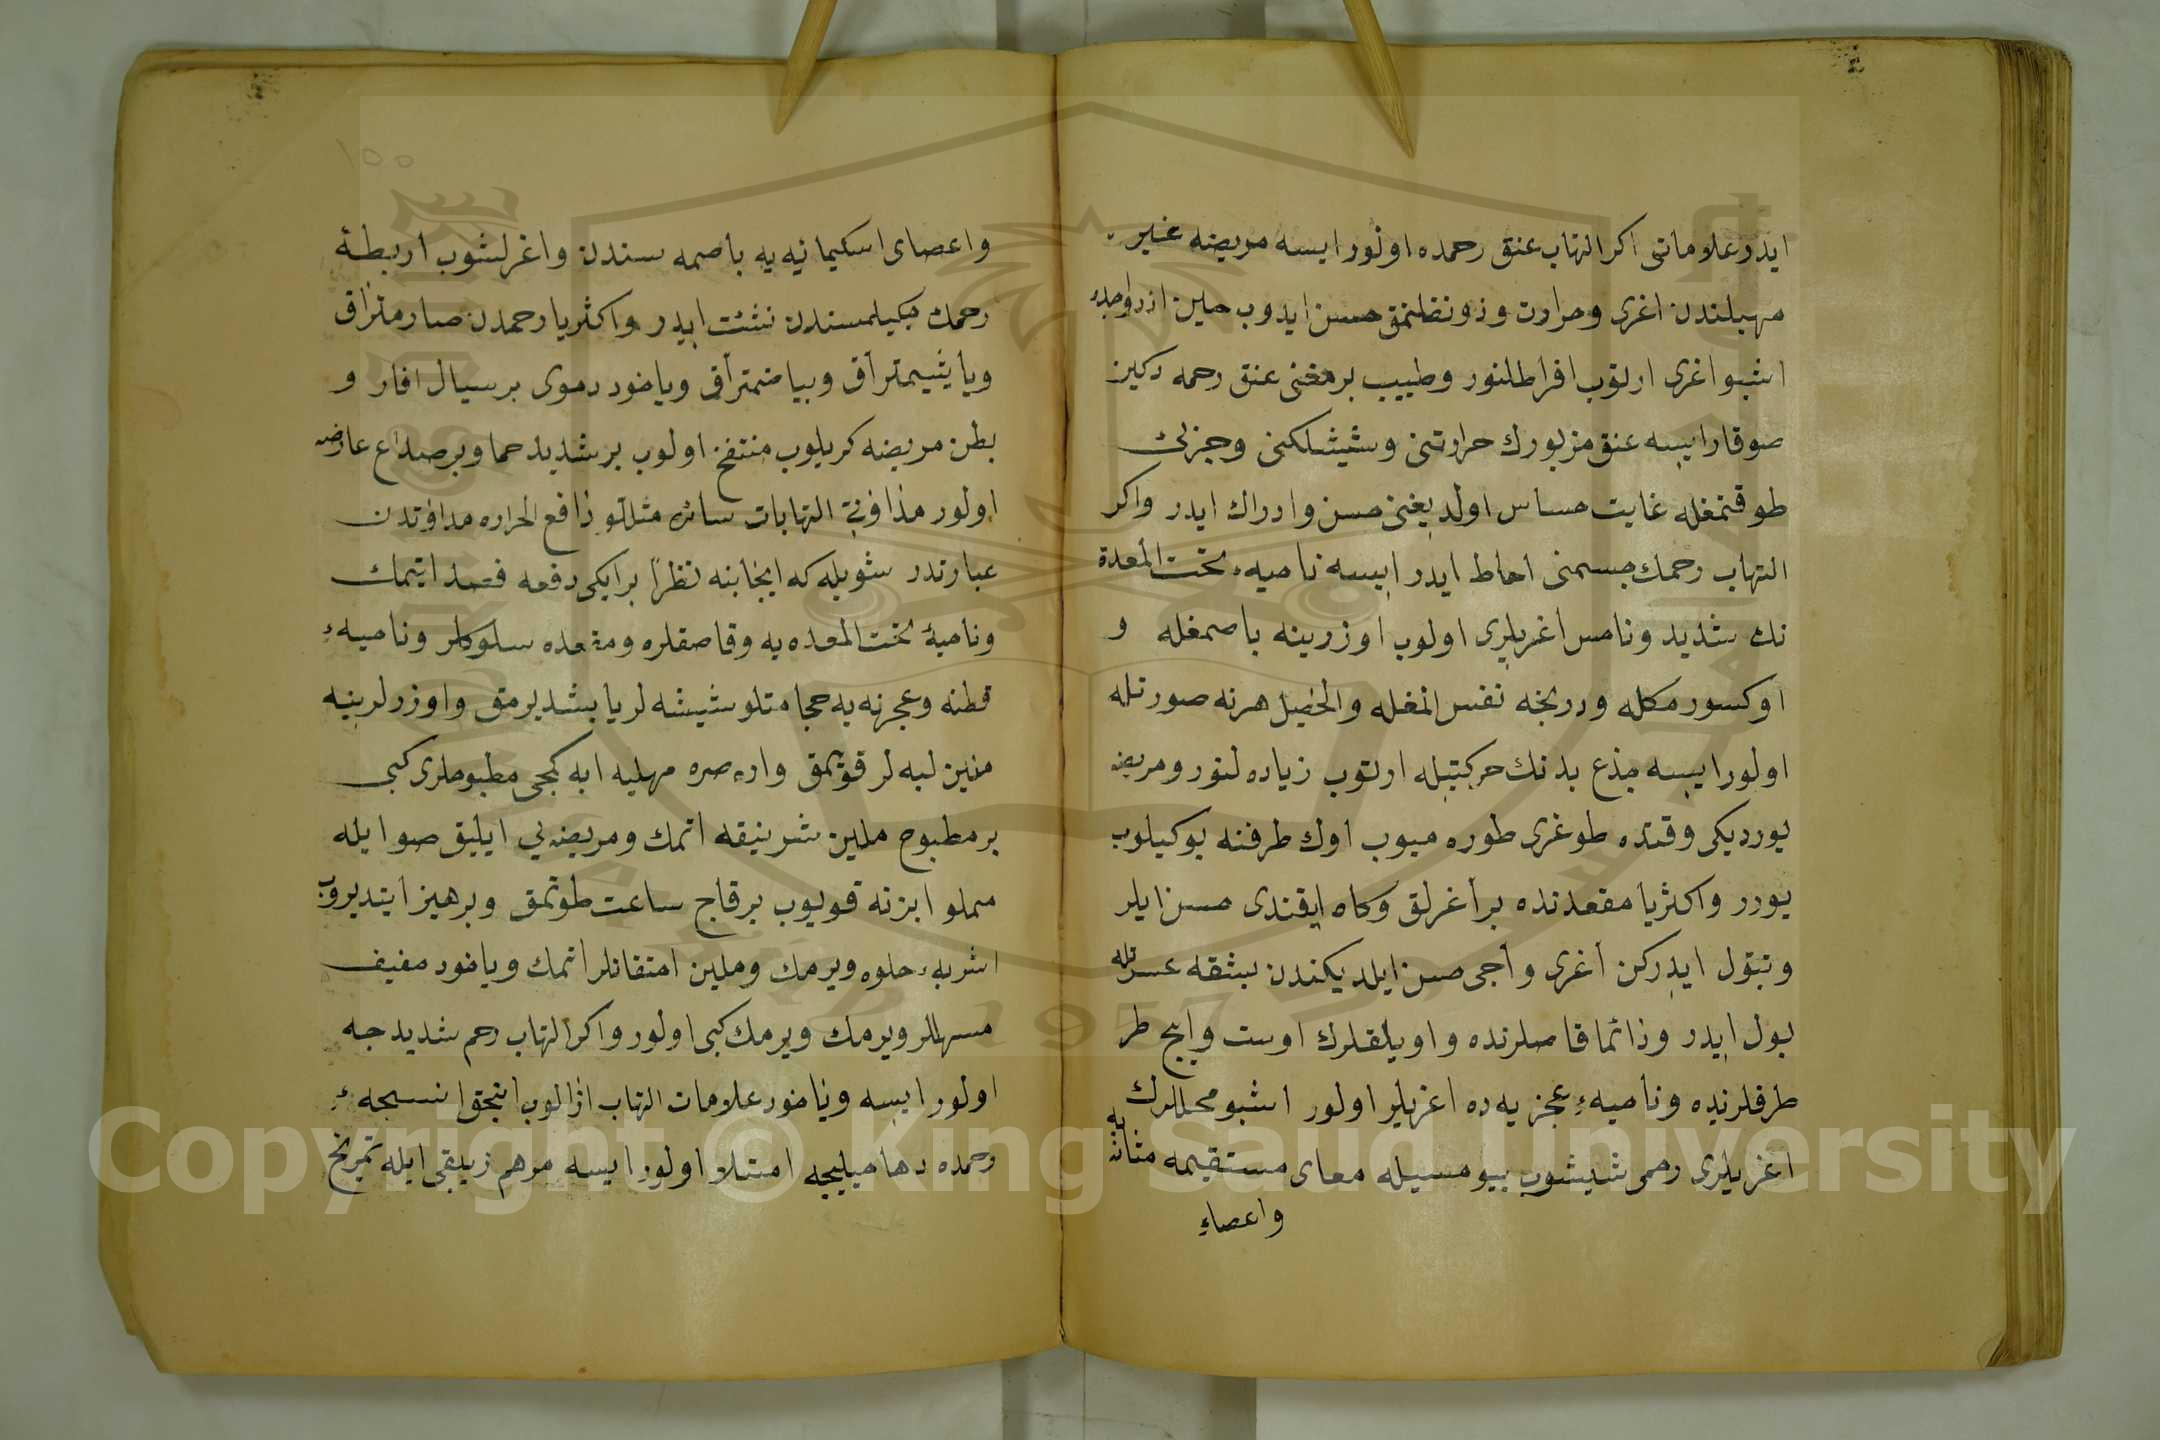 ايدر علاماتى اكر التهاب عنق رحمده اولور ايسه مريضه غير
مهبلندن اغرى وحرارت وذونقلنمق حسن ايدوب حين ازدواجده
اشبو اغرى ارتوب افراطلنور وطبيب برمغنى عنق رحمه دكين
صوقار ايسه عنق مزبورك حرارتنى وشيشلكنى وجزئ
طوقتمغله غايت حساس اولديغنى حسن وادراك ايدر واكر
التهاب رحمك جسمنى احاط ايدر ايسه ناحيهء تحت المعدة
نك شديد ونامس اغريلرى اولوب اوزرينه باصمغله و
اوكسورمكله ودرينجه تفس المغله والحاصل هرنه صورتله
اولور ايسه جذع بدنك حركتيله ارتوب زياده لنور ومريضه
يورديكى وقتده طوغرى طوره ميوب اوك طرفنه بوكيلوب
يورر واكثريا مقعدنده بر أغرلق وكاه ايقندى حسن ايلر
وتبوّل ايدركن أغرى وأجى حسن ايلديكندن بشقه عسرتله
بول ايدر ودائما قاصلرنده واويلقلرك اوست وايچ طر
طرفلرنده وناحيهءِ عجزيه ده اغريلر اولور اشبو محللرك
اغريلرى رحمى شيشوب بيومسيله معاى مستقيمه مثانه يه
واعصاءِ
١٥٥
واعصاى اسكيمائيه يه باصمه سندن واغرلشوب اربطهٔ
رحمك چكيلمسندن نشئت ايدر واكثريا رحمدن صارمتراق
ويا يشيمتراق وبياضمتراق وياخود دموى بر سيال اقار و
بطن مريضه كريلوب منتفخ اولوب بر شديد حما وبر صداع عارضه
اولور مداوتى التهابات سائره مثللو دافع الحراره مداوتدن
عبارتدر شويله كه ايجابنه نظرًا بر ايكى دفعه فصد ايتمك
وناحيهٔ تحت المعده يه وقاصقلره ومقعده سلوكلر وناحيهءِ
قطنه وعجزنه يه حجامتلو شيشه لر يابشديرمق واوزرلرينه
منين لبه لر قويمق واره صره مهليه ابه كجى مطبوحلرى كبى
بر مطبوح ملين شرينيقه اتمك ومريضه يى ايليق صو ايله
مملو ابزنه قويوب برقاچ ساعت طوتمق وبرهيز ايتديروب
اشربهءِ حلوه ويرمك وملين احتقانلر اتمك وياخود خفيف
مسهللر ويرمك ويرمك كبى اولور واكر التهاب رحم شديدجه
اولور ايسه وياخود علامات التهاب ازالوب انجق انسجهءِ
رحمده دها خيليجه امتلا اولور ايسه مرهم زيبقى ايله تمريخ
Copyright © King Saud University
1957